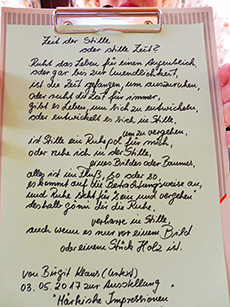 Zeit der Stille
oder stille Zeit?
Ruht das Leben für einen Augenblick
oder gar bis zur Unendlichkeit,
ist die Zeit gefangen, um auszuruhen,
oder ruht die Zeit für immer,
gibt es Leben, um sich zu entwickeln
oder entwickelt es sich in Stille,
um zu vergehen,
ist Stille ein Ruhepol für mich,
oder ruhe ich in der Stille,
eines Bildes oder Baumes,
alles ist im Fluß, so oder so,
es kommt auf die Betrachtungsweise an,
und Ruhe steht für "sein und vergehen"
deshalb gönn dir die Ruhe,
verharre in Stille,
auch wenn es nur vor einem Bild
oder einem Stück Holz ist.
von Birgit Klaus
03.05.2017 zur Ausstellung
"Märkische Impressionen